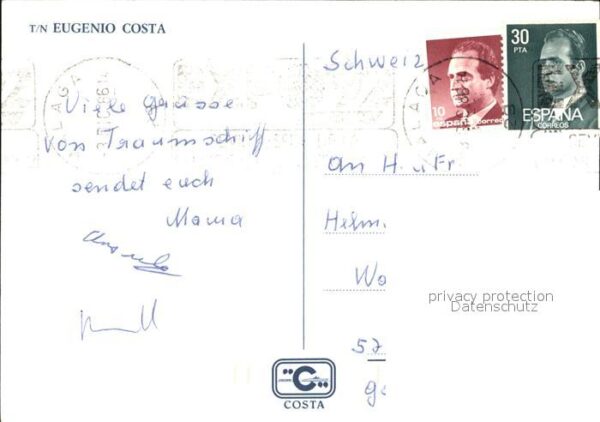 T/N EUGENIO COSTA
Viele Grüsse
von Traumschiff
sendet euch
Mama
Schweiz
An H. u Fr
Helm.
Wo
57
ge
10
españa
correos
30
PTA
ESPAÑA
CORREOS
MALAGA
privacy protection
Datenschutz
"C"
COSTA